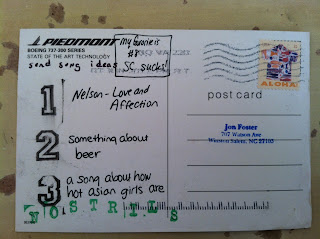 PIEDMONT
BOEING 737-300 SERIES
STATE OF THE ART TECHNOLOGY
send song ideas
my favorite is
#8
SC sucks!
ALOHA
post card
1
Nelson - Love and
Affection
2
something about
beer
3
a song about how
hot asian girls are
NOSTRILS
Jon Foster
707 Watson Ave
Winston Salem, NC 27103